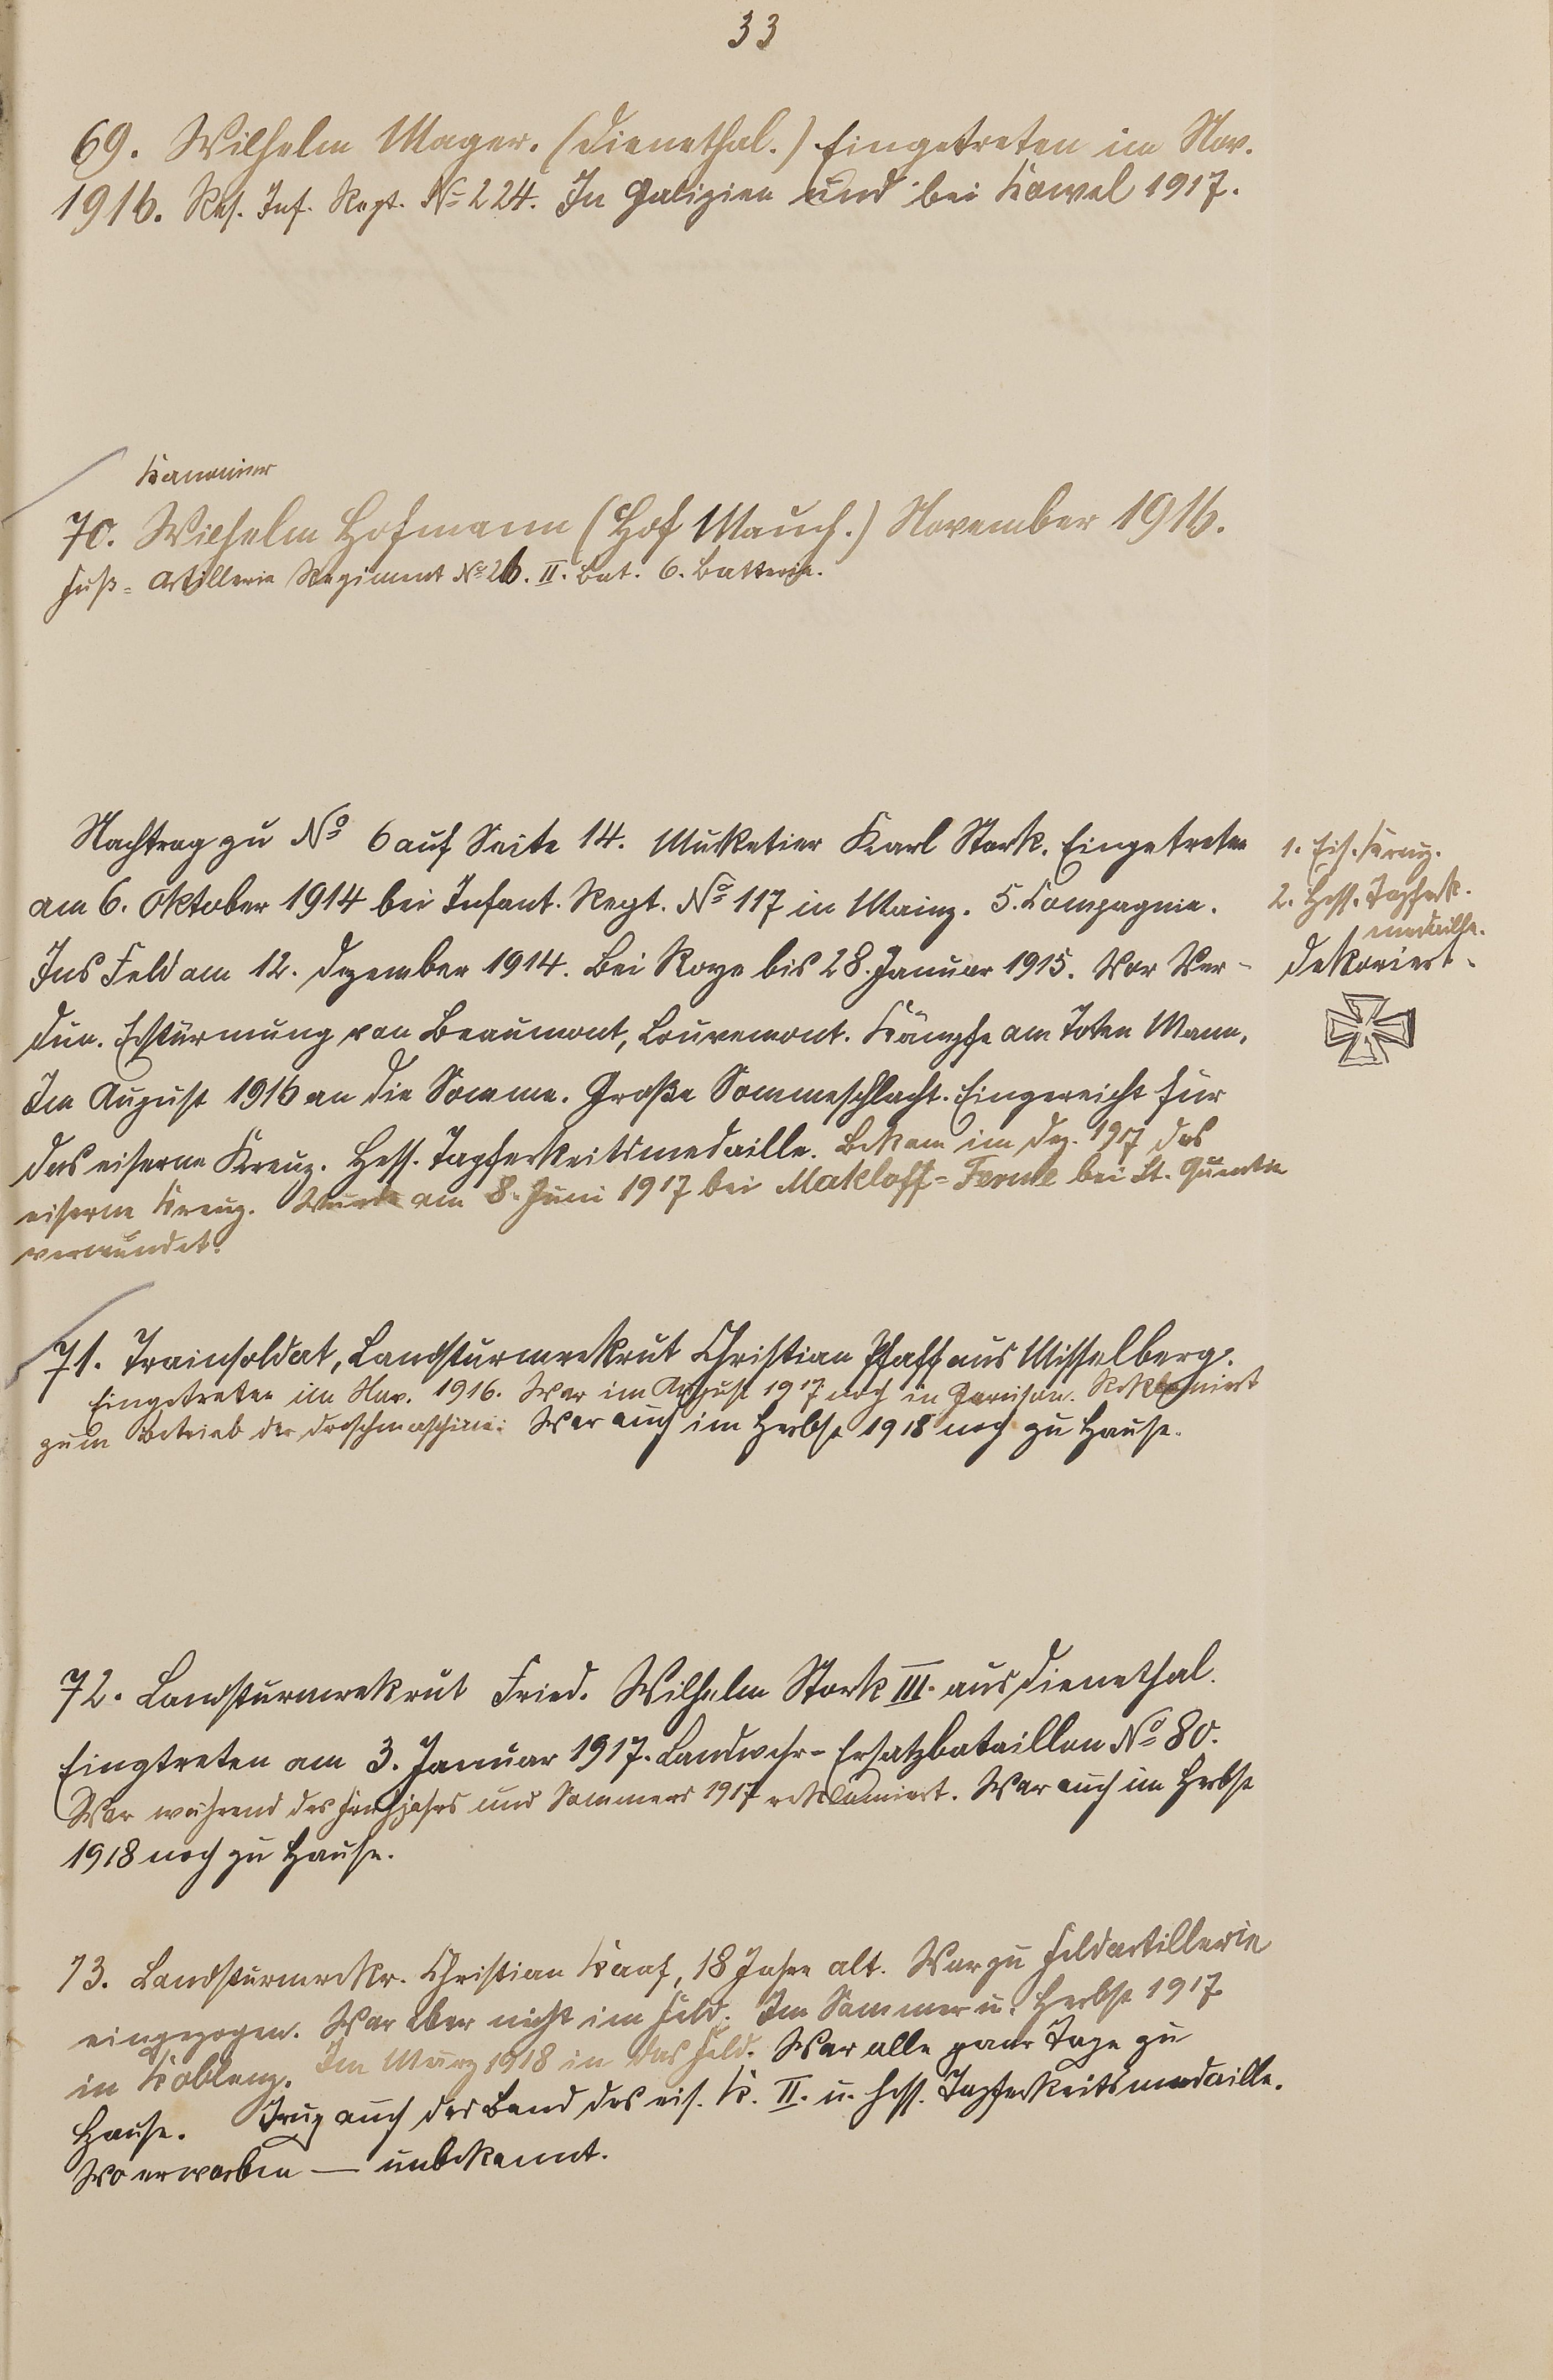 33
69. Wilhelm Mager. (Dienethal.) Eingetreten im Nov.
1916. Res. Inf. Regt. No 224. In Galizien und bei Kowel 1917.
Kanonier
70. Wilhelm Hofmann (Hof Mauch.) November 1916.
Fuß-Artillerie Regiment No 26. II. Bat. 6. Batterie.
Nachtrag zu No 6 auf Seite 14. Musketier Karl Stork. Eingetreten
am 6. Oktober 1914 bei Infant. Regt. No 117 in Mainz. 5. Compagnie.
Ins Feld am 12. Dezember 1914. Bei Roye bis 28. Januar 1915. Vor Ver-
dun. Erstürmung von Beaumont, Louvemont. Kämpfe am Toten Mann.
Im August 1916 an die Somme. Große Sommeschlacht. Eingereicht für
das eiserne Kreuz. Hess. Tapferkeitsmedaille. Bekam im Dez. 1917 das
eiserne Kreuz. Wurde am 8. Juni 1917 bei Makloff-Ferme bei St. Quentin
verwundet.
1. Eis. Kreuz.
2. Hess. Tapferk.
medaille.
dekoriert.
71. Trainsoldat, Landsturmrekrut Christian Pfaff aus Misselberg.
Eingetreten im Nov. 1916. War im August 1917 noch in Garnison. Reklamiert
zum Betrieb der Dreschmaschine. War auch im Herbst 1918 noch zu Hause.
72. Landsturmrekrut Fried. Wilhelm Stork III. aus Dienethal.
Eingtreten am 3. Januar 1917. Landwehr-Ersatzbataillon No 80.
War während des Frühjahrs und Sommers 1917 reklamiert. War auch im Herbst
1918 noch zu Hause.
73. Landsturmrekr. Christian Kaaf, 18 Jahre alt. War zu Feldartillerie
eingezogen. War aber nicht im Feld. Im Sommer u. Herbst 1917
in Koblenz. Im März 1918 in das Feld. War alle paar Tage zu
Hause. Trug auch das Band des eis. K. II. u. hess. Tapferkeitsmedaille.
Wo erworben — unbekannt.